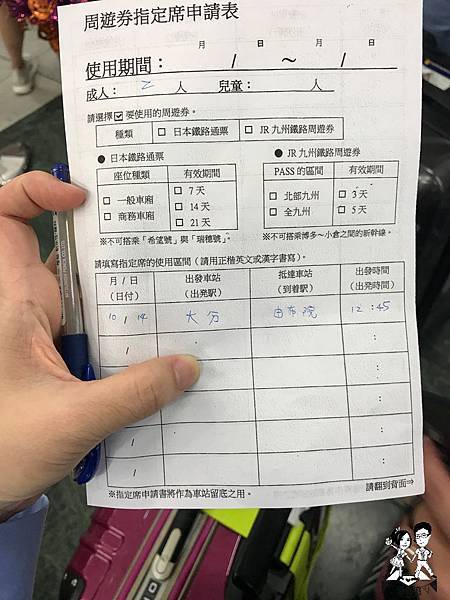 周遊券指定席申請表
月 日 月 日
使用期間： / ～ /
成人： 2 人 兒童： 人
請選擇☑要使用的周遊券。
種類 □ 日本鐵路通票 □ JR 九州鐵路周遊券
● 日本鐵路通票
座位種類 有效期間
□ 一般車廂
□ 商務車廂
□ 7 天
□ 14 天
□ 21 天
※不可搭乘「希望號」與「瑞穗號」。
● JR 九州鐵路周遊券
PASS 的區間 有效期間
□ 北部九州 □ 3 天
□ 全九州 □ 5 天
※不可搭乘博多～小倉之間的新幹線。
請填寫指定席的使用區間（請用正楷英文或漢字書寫）。
月 / 日 出發車站 抵達車站 出發時間
（日付） （出発駅） （到着駅） （出発時間）
10 / 14 大分 由布院 12：45
/ ：
/ ：
/ ：
/ ：
※指定席申請書將作為車站留底之用。
請翻到背面⇒